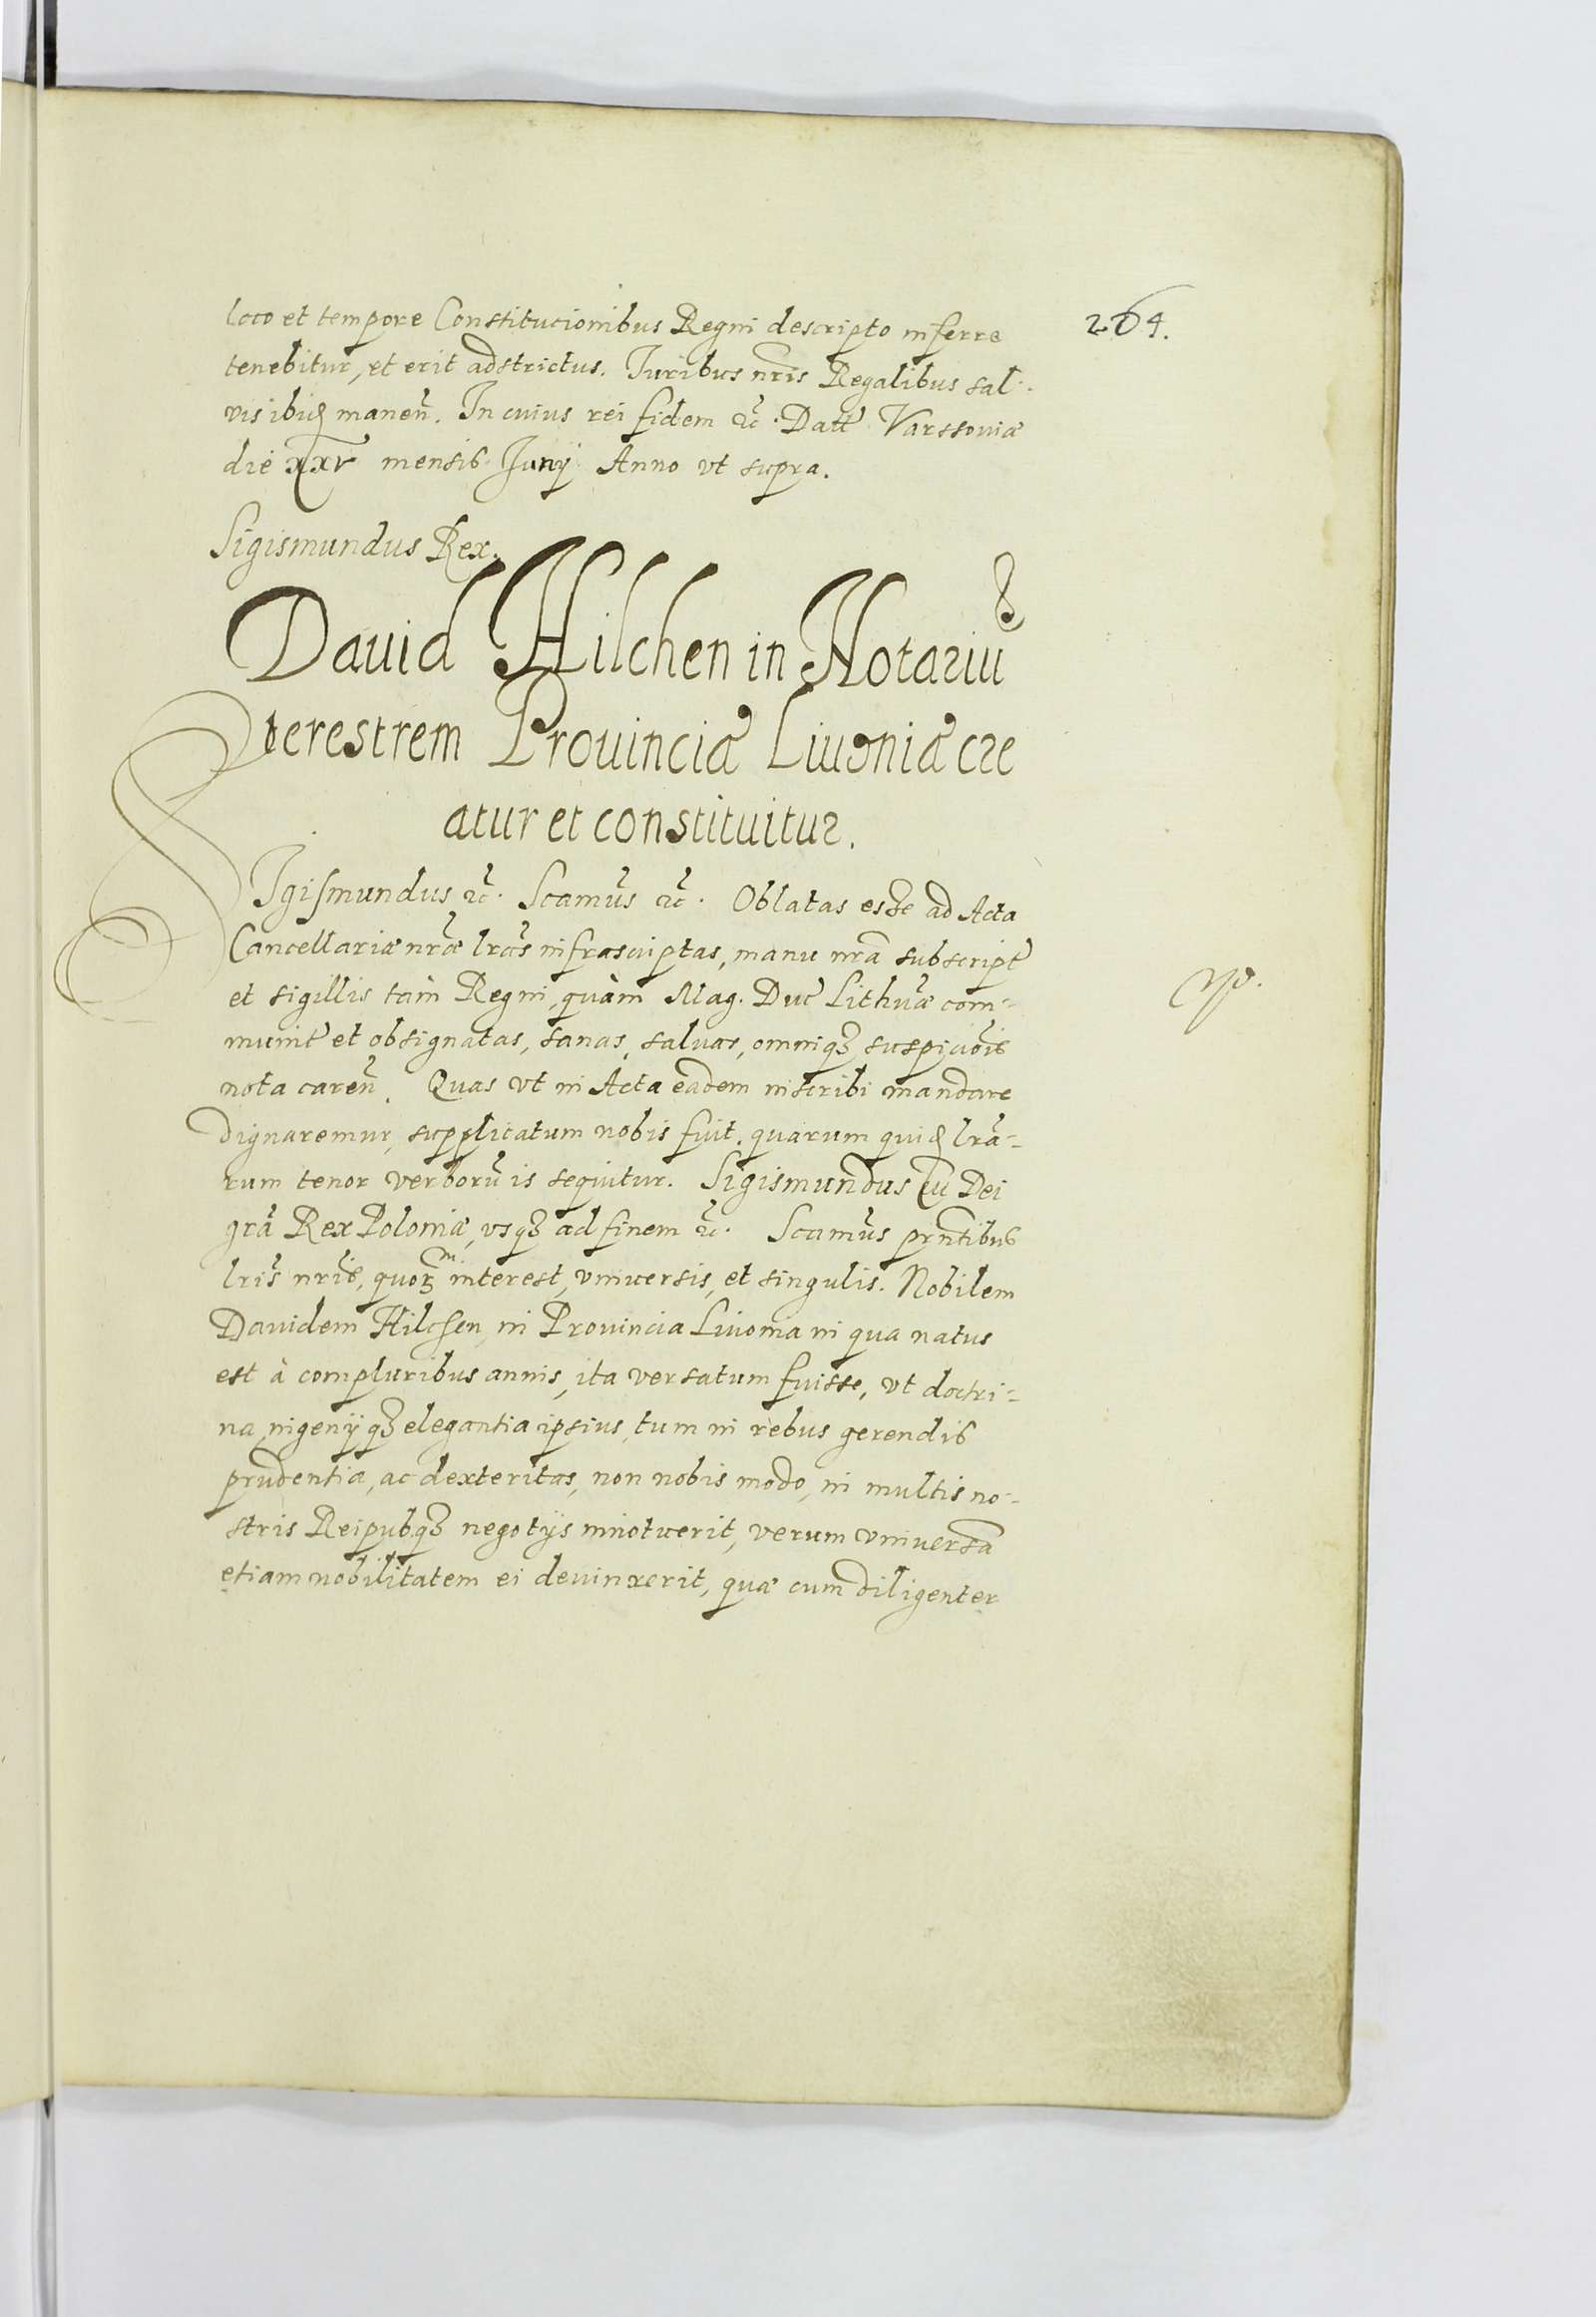 loco et tempore Constitucionibus Regni descripto inferre
264.
tenebitur, et erit adstrictus. Iuribus nr̃is Regalibus sal-
vis ibid manen̄. In cuius rei fidem &c̃. Datt Varssoviæ
die xxv mensis Iunÿ Anno vt supra.
Sigismundus Rex.
Dauid Hilchen in Notariũ
terestrem Prouinciæ Liuoniæ cre
atur et constituitur.
SIgismundus &c̃. Scam̃us &c̃. Oblatas esse ad Acta
Cancellariæ nr̃æ lr̃as infrascriptas, manu nr̃a subscript̃
et sigillis tàm Regni quàm Mag. Duc̃ Lithũæ com-
munit̃ et obsignatas, sanas, saluas, omniqꝫ suspicio̅is
nota caren̄. Quas vt in Acta eadem inscribi mandare
dignaremur, supplicatum nobis fuit. quarum quid lr̃a-
rum tenor verborũ is sequitur. Sigismundus IIIͥ Dei
grã Rex Poloniæ, vsqꝫ ad finem &c̃. Scam̃us prñtibus
lr̃is nr̃is, quoꝝ interest, vniuersis, et singulis. Nobilem
Dauidem Hilchen in Prouincia Liuonia in qua natus
est à compluribus annis, ita versatum fuisse, vt doctri-
na ingenÿqꝫ elegantia ipsius, tum in rebus gerendis
prudentia, ac dexteritas, non nobis modo, in multis no-
stris Reipubqꝫ negotÿs innotuerit, verum vniuersã
etiam nobilitatem ei deuinxerit, quæ cum diligenter